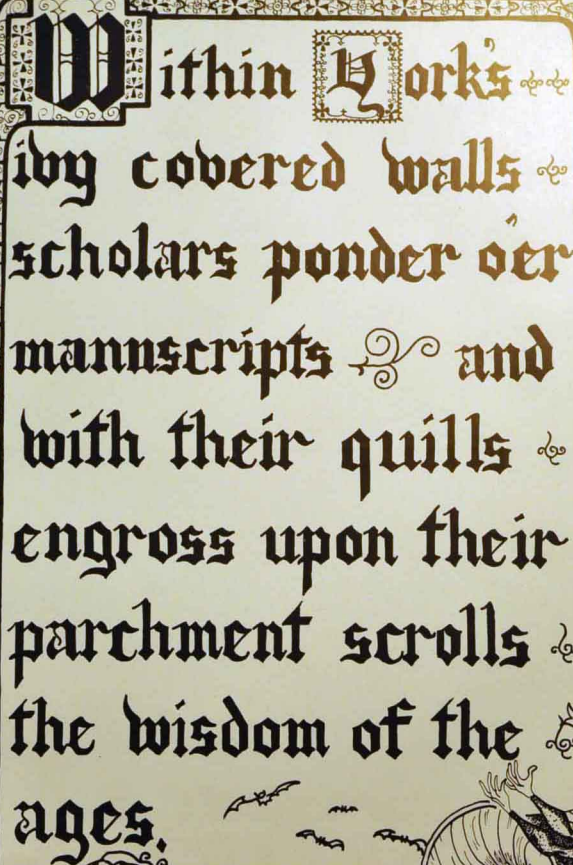 Within York's
ivy covered walls
scholars ponder o'er
manuscripts and
with their quills
engross upon their
parchment scrolls
the wisdom of the
ages.